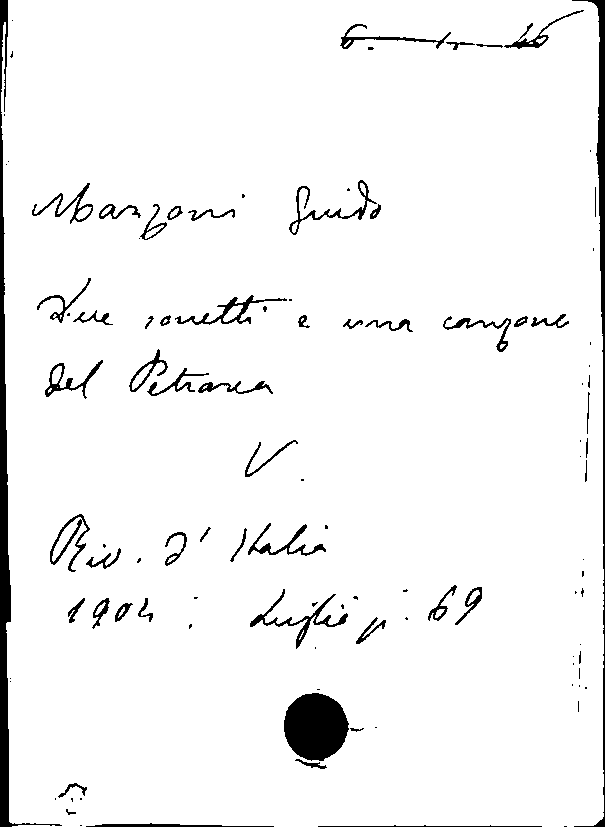 6. 1. 46
Manzoni Guido
Due sonetti e una canzone
del Petrarca
V.
Riv. d' Italia
1904 : Luglio p. 69